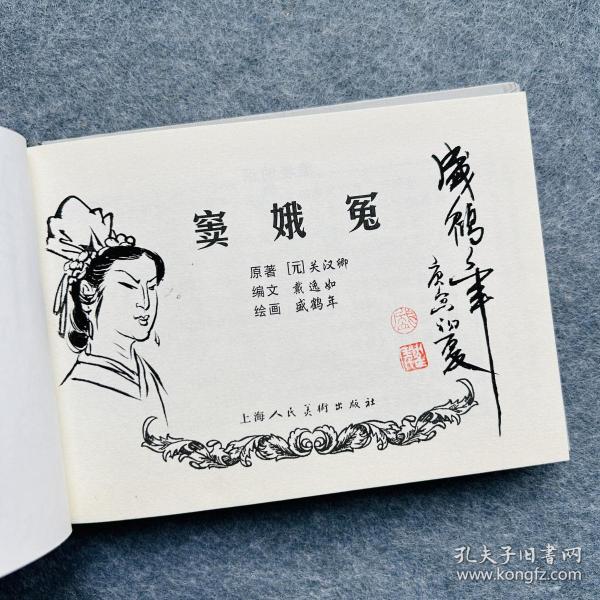 窦娥冤
原著 [元]关汉卿
编文 戴逸如
绘画 盛鹤年
上海人民美術出版社
盛鹤年
庚寅初夏
孔夫子旧書网
www.kongfz.com